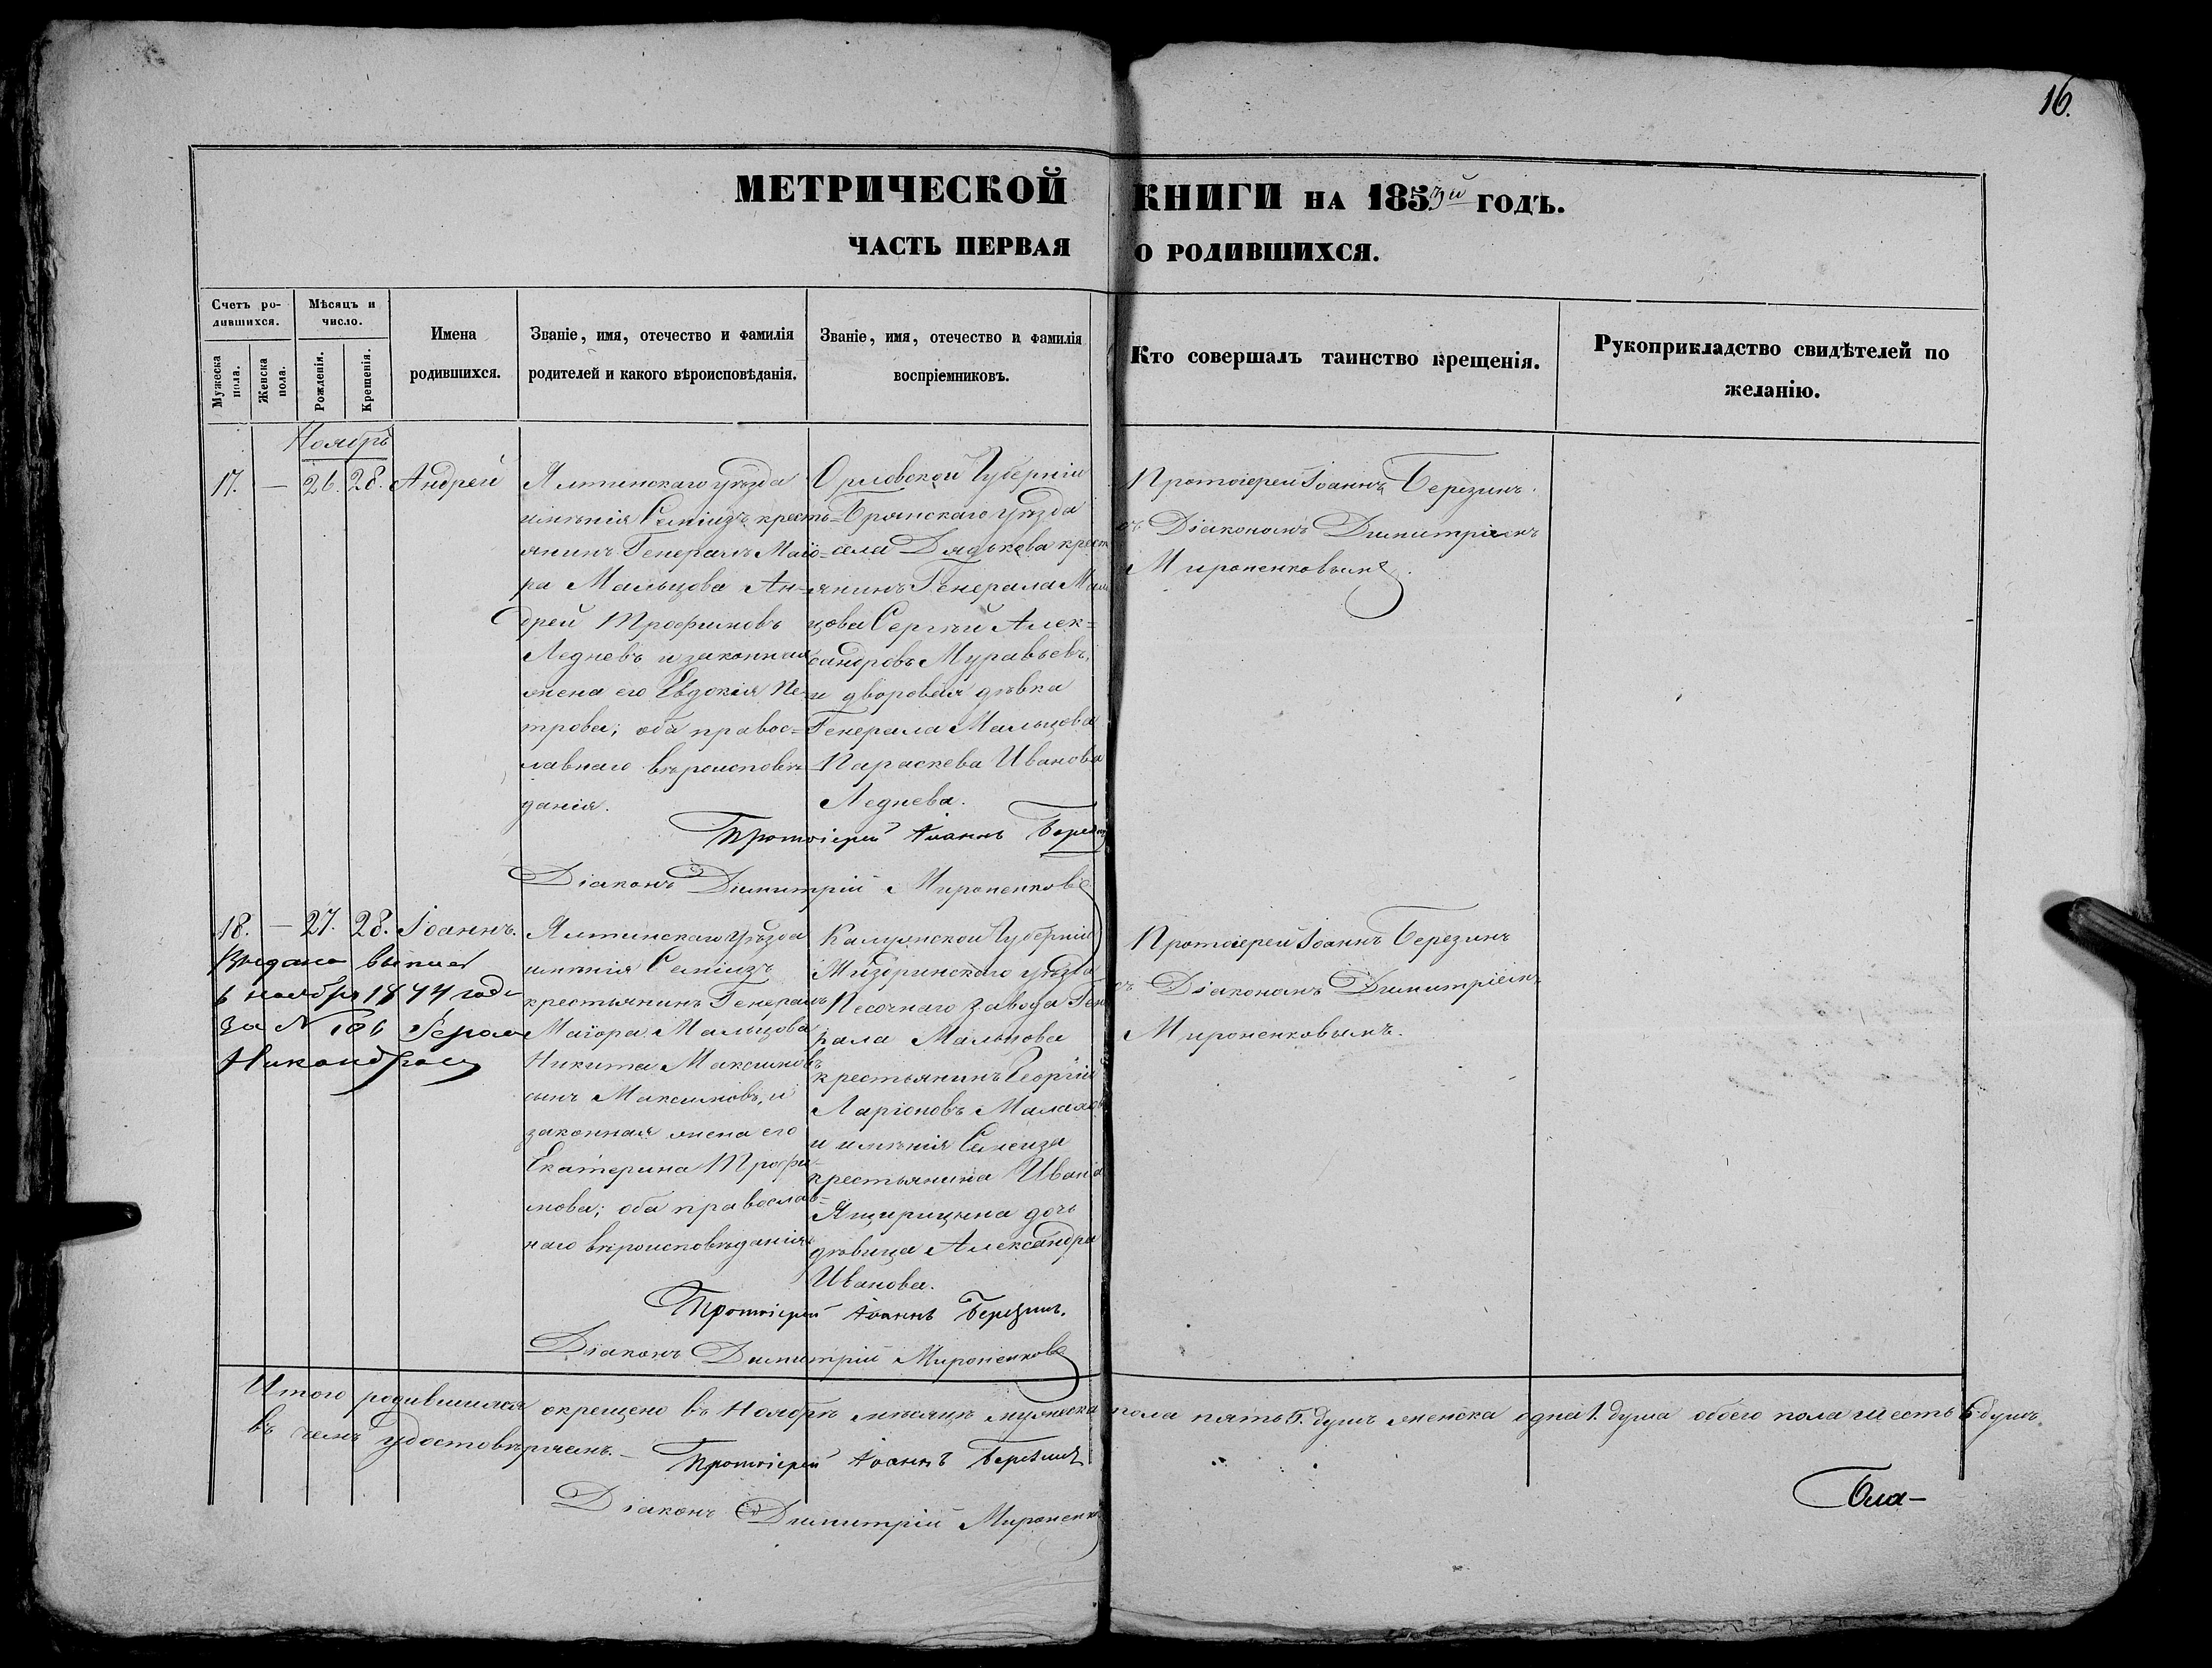 16.
МЕТРИЧЕСКОЙ КНИГИ НА 1853й ГОДЪ.
ЧАСТЬ ПЕРВАЯ О РОДИВШИХСЯ.
Счетъ ро-
дившихся.
Мужеска пола.
Женска пола.
Мѣсяцъ и
число.
Рожденія.
Крещенія.
Имена
родившихся.
Званіе, имя, отечество и фамилія
родителей и какого вѣроисповѣданія.
Званіе, имя, отечество и фамилія
воспріемниковъ.
Кто совершалъ таинство крещенія.
Рукоприкладство свидѣтелей по
желанію.
Ноябрь
17. — 26. 28. Андрей
Ялтинскаго уѣзда
имѣнія Симіизъ кресть=
янинъ Генералъ Маіо=
ра Мальцова Ан=
дрей Трофимовъ
Ледневъ и законная
жена его Евдокія Пе=
трова; оба правос=
лавнаго вѣроисповѣ=
данія.
Орловской Губерніи
Брянскаго уѣзда
села Дядькова крест
янинъ Генерала Маль
цова Сергѣй Алек=
сандровъ Муравьевъ,
и дворовая дѣвка
Генерала Мальцова
Параскева Иванова
Леднева.
Протоіерей Іоаннъ Березинъ
съ Діакономъ Димитріемъ
Мироненковымъ.
Протоіерей Іоаннъ Березинъ
Діаконъ Димитрій Мироненковъ
18. — 27. 28. Іоаннъ.
Выдана выпись
6 ноября 1874 года
за № 106
Ялтинскаго уѣзда
имѣнія Симіизъ
крестьянинъ Генералъ
Маіора Мальцова
Никита Максимовъ
сынъ Максимовъ, и
законная жена его
Екатерина Трофи-
мова; оба православ=
наго вѣроисповѣданія.
Калужской Губерніи
Жиздринскаго уѣзда
Песочнаго завода Гене
рала Мальцова
крестьянинъ Георгій
Ларіоновъ Малахов
и имѣнія Симеиза
крестьянина Ивана
Ящерицына дочь
дѣвица Александра
Иванова.
Протоіерей Іоаннъ Березинъ
съ Діакономъ Димитріемъ
Мироненковымъ.
Протоіерей Іоаннъ Березинъ.
Діаконъ Димитрій Мироненковъ
Итого родившихся окрещено въ Ноябрѣ мѣсяцѣ мужеска пола пять 5. душъ женска одна 1. душа обоего пола шесть 6 душъ.
въ чемъ удостовѣряемъ. —
Протоіерей Іоаннъ Березинъ
Діаконъ Димитрій Мироненко